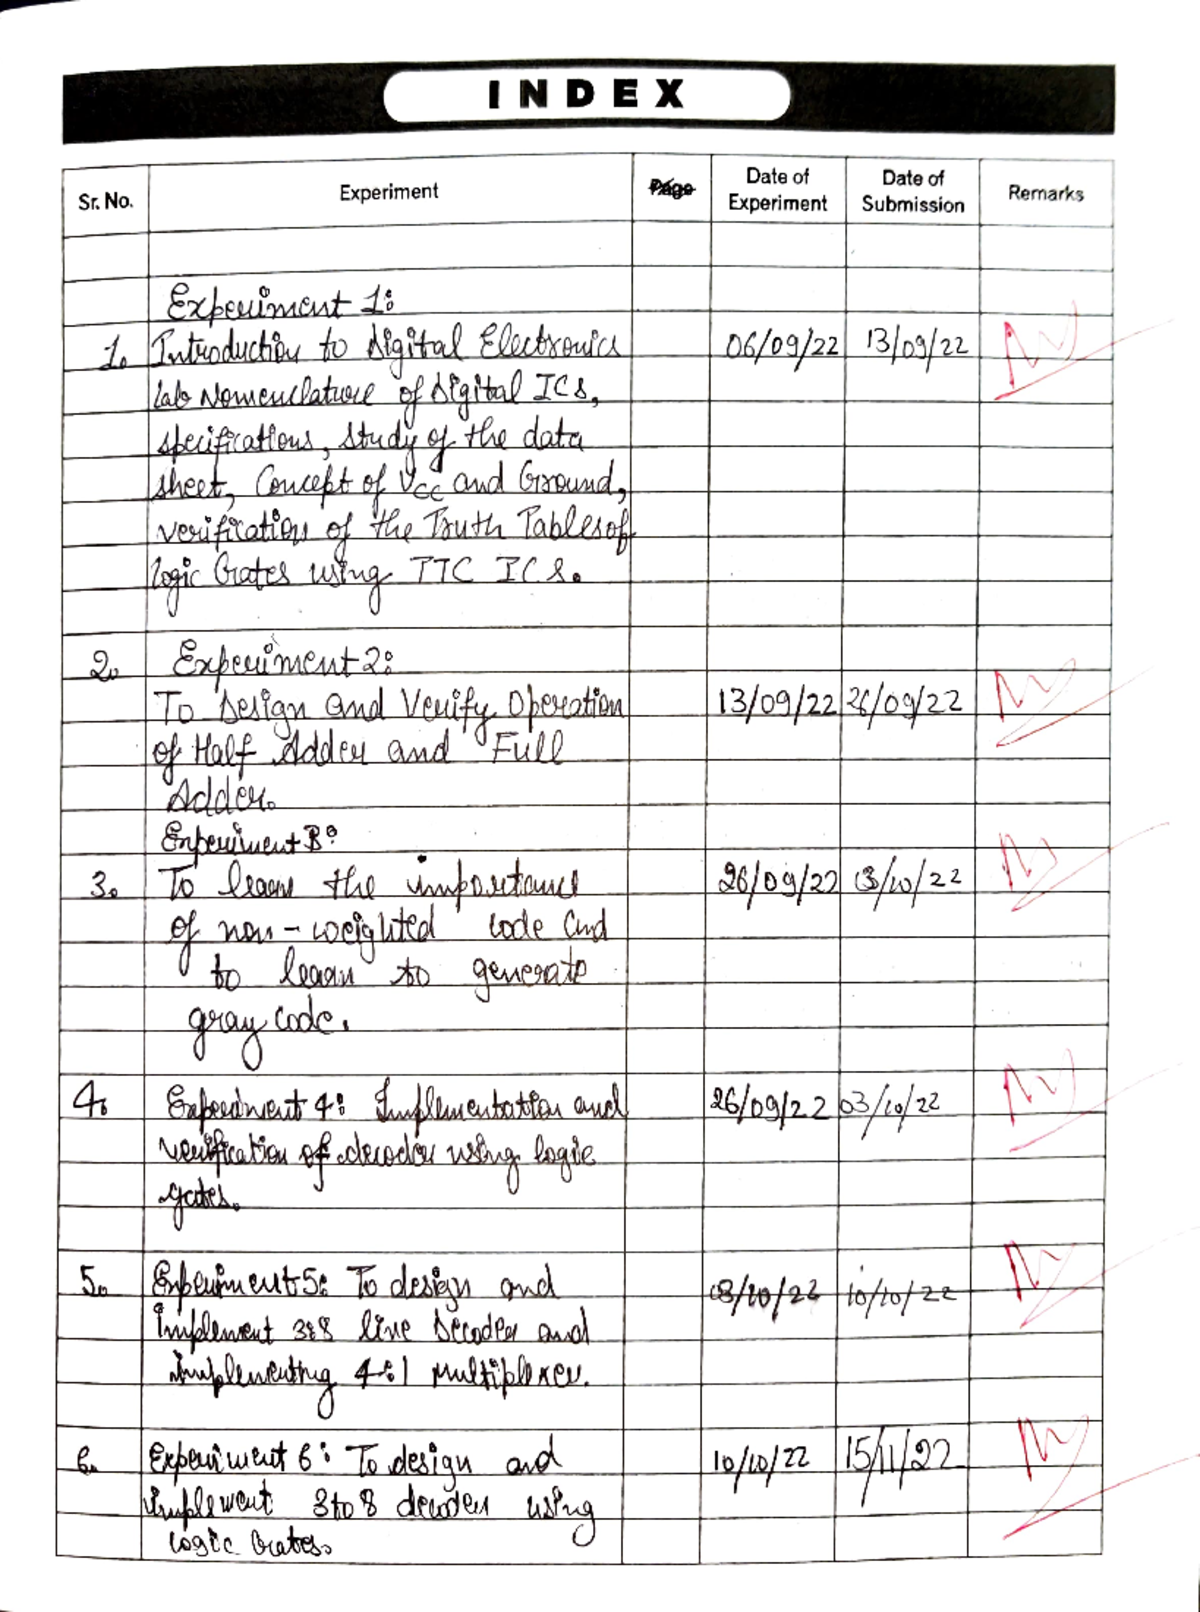 INDEX
Sr. No. Experiment Page Date of Experiment Date of Submission Remarks
Experiment 1:
1. Introduction to Digital Electronics 06/09/22 13/09/22
Lab Nomenclature of Digital ICs,
specifications, study of the data
sheet, Concept of VCC and Ground,
verification of the Truth Tables of
logic Gates using TTC ICs.
2. Experiment 2:
To Design and Verify Operation 13/09/22 26/09/22
of Half Adder and Full
Adder.
Experiment 3:
3. To learn the importance 26/09/22 03/10/22
of non-weighted code and
to learn to generate
gray code.
4. Experiment 4: Implementation and 26/09/22 03/10/22
verification of decoder using logic
gates.
5. Experiment 5: To design and 03/10/22 10/10/22
implement 3:8 line Decoder and
implementing 4:1 Multiplexer.
6. Experiment 6: To design and 10/10/22 15/11/22
implement 3 to 8 decoder using
logic Gates.